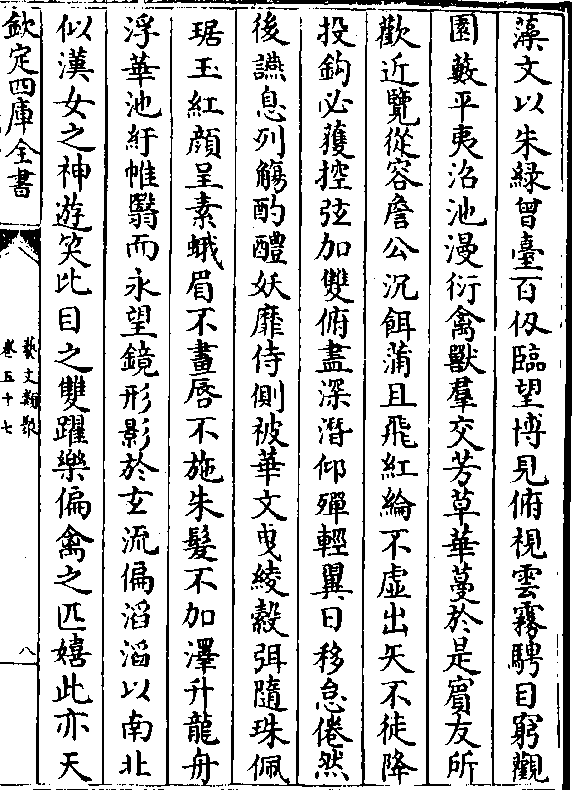 藻文以朱緑曾臺百仭臨望博見俯視雲霧騁目窮觀
園藪平夷沼池漫衍禽獸羣交芳草華蔓於是賔友所
歡近覽從容詹公沉餌蒲且飛紅綸不虚出矢不徒降
投鈎必獲控弦加雙俯盡深潛仰殫輕翼日移怠倦然
後讌息列觴酌醴妖靡侍側被華文曳綾縠弭隨珠佩
琚玉紅顔呈素蛾眉不畫唇不施朱髮不加澤升龍舟
浮華池紆帷翳而永望鏡形影於玄流偏滔滔以南北
似漢女之神遊笑比目之雙躍樂偏禽之匹嬉此亦天
欽定四庫全書
藝文類聚
卷五十七
八